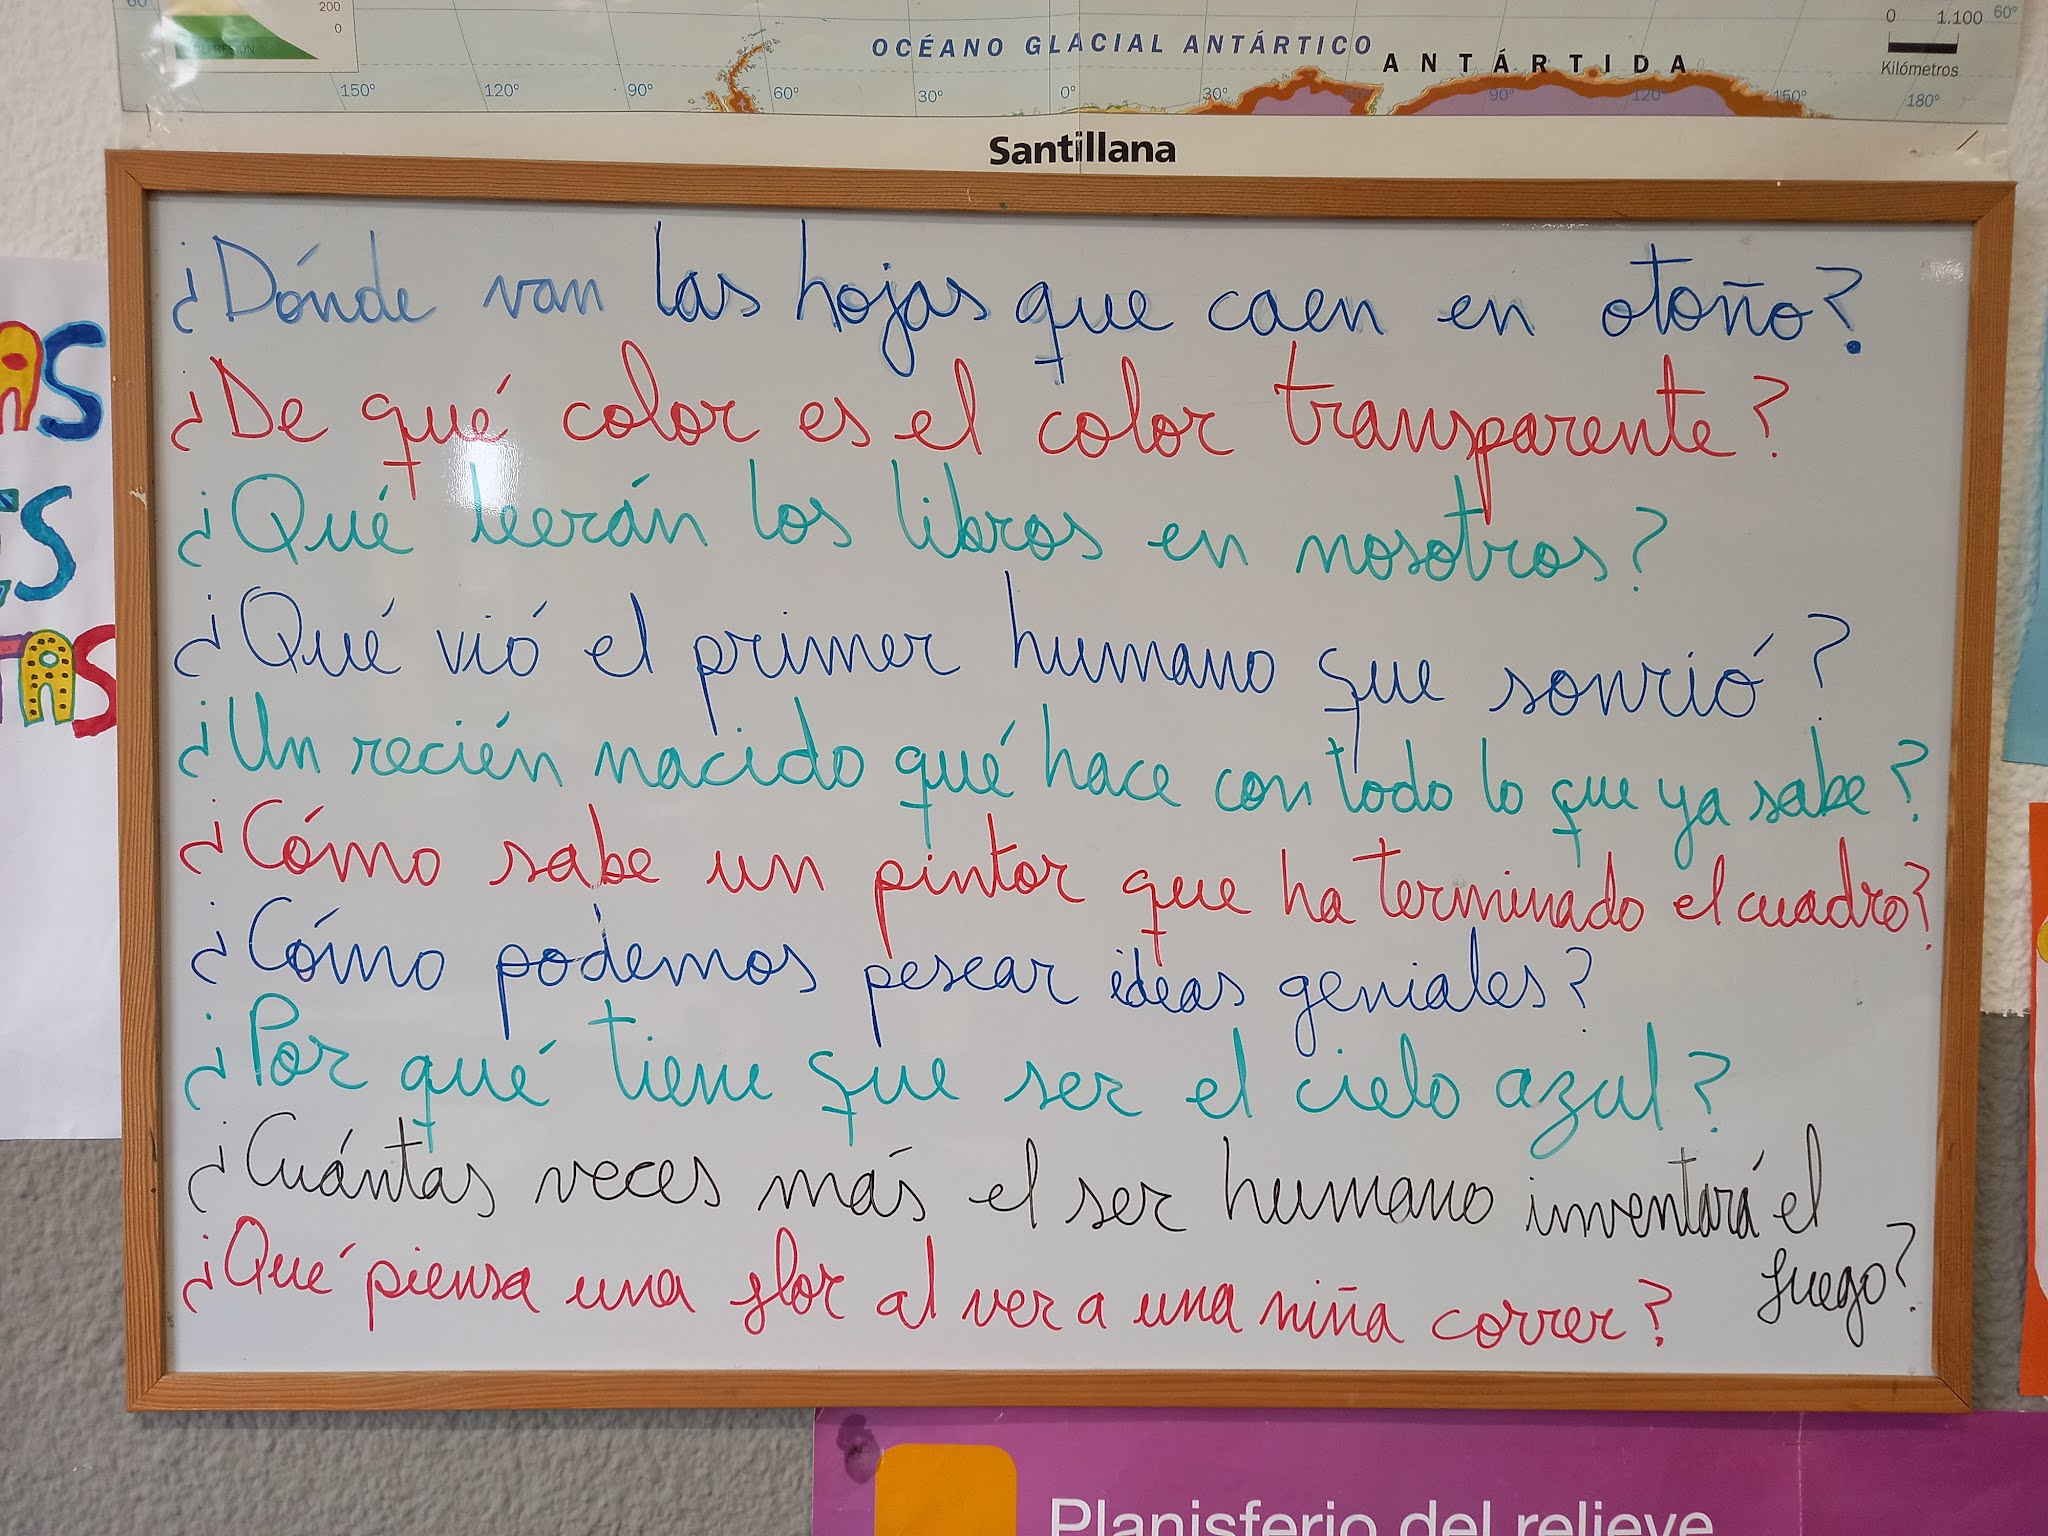 60°
200
0
DEPRESIÓN
OCÉANO GLACIAL ANTÁRTICO
ANTÁRTIDA
0 1.100 60°
Kilómetros
150° 120° 90° 60° 30° 0° 30° 60° 90° 120° 150° 180°
Santillana
¿Dónde van las hojas que caen en otoño?
¿De qué color es el color transparente?
¿Qué leerán los libros en nosotros?
¿Qué vió el primer humano que sonrió?
¿Un recién nacido qué hace con todo lo que ya sabe?
¿Cómo sabe un pintor que ha terminado el cuadro?
¿Cómo podemos pesear ideas geniales?
¿Por qué tiene que ser el cielo azul?
¿Cuántas veces más el ser humano inventará el
fuego?
¿Qué piensa una flor al ver a una niña correr?
AS
ES
TAS
Planisferio del relieve